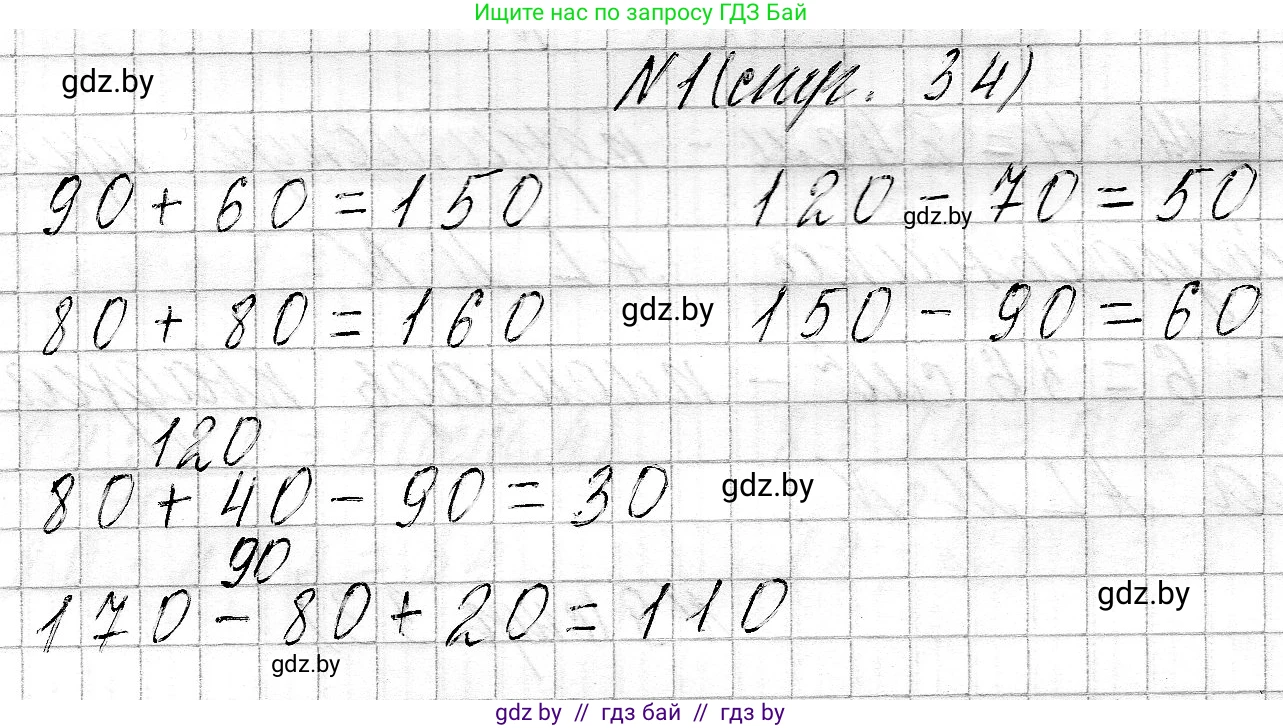 Ищите нас по запросу ГДЗ Бай
gdz.by
№1 (стр. 34)
90 + 60 = 150 120 - 70 = 50
gdz.by
80 + 80 = 160 gdz.by 150 - 90 = 60
120
80 + 40 - 90 = 30 gdz.by
90
170 - 80 + 20 = 110 gdz.by
gdz.by
gdz by // гдз бай // гдз by